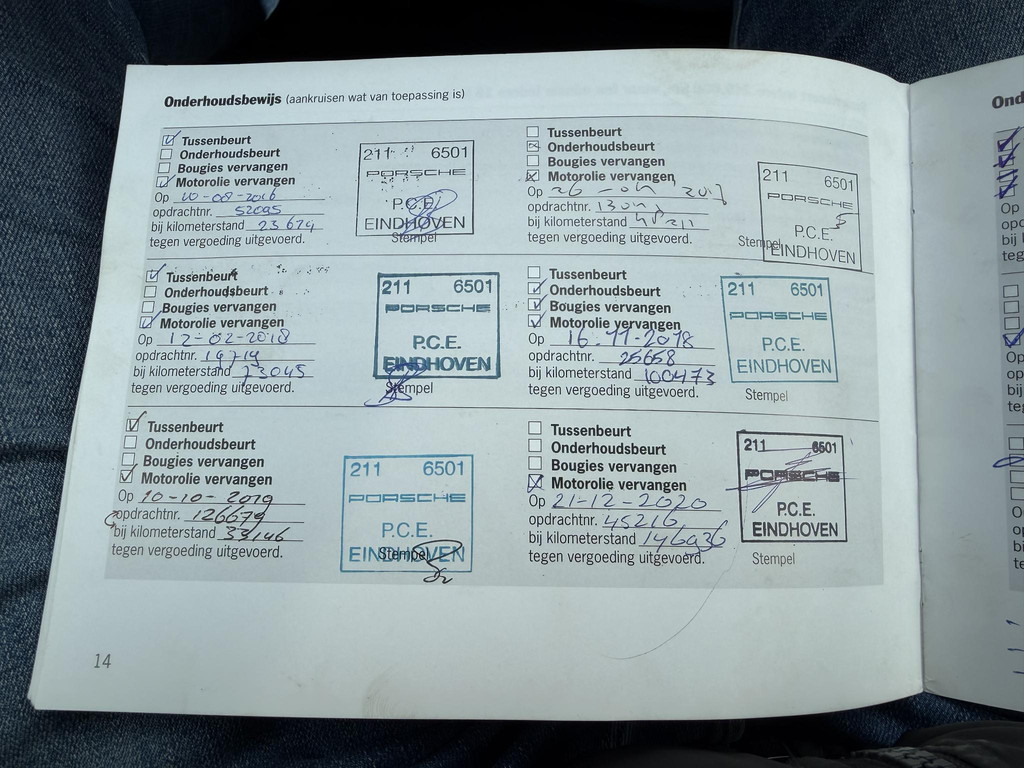 Onderhoudsbewijs (aankruisen wat van toepassing is)
Tussenbeurt
Onderhoudsbeurt
Bougies vervangen
Motorolie vervangen
Op 10-08-2016
opdrachtnr. 52095
bij kilometerstand 23674
tegen vergoeding uitgevoerd.
211 6501
PORSCHE
P.C.E.
EINDHOVEN
Stempel
Tussenbeurt
Onderhoudsbeurt
Bougies vervangen
Motorolie vervangen
Op 26-04 2017
opdrachtnr.
bij kilometerstand
tegen vergoeding uitgevoerd.
211 6501
PORSCHE
P.C.E.
EINDHOVEN
Stempel
Tussenbeurt
Onderhoudsbeurt
Bougies vervangen
Motorolie vervangen
Op 12-02-2018
opdrachtnr. 19719
bij kilometerstand 73045
tegen vergoeding uitgevoerd.
211 6501
PORSCHE
P.C.E.
EINDHOVEN
Stempel
Tussenbeurt
Onderhoudsbeurt
Bougies vervangen
Motorolie vervangen
Op 16-11-2018
opdrachtnr. 25658
bij kilometerstand 100473
tegen vergoeding uitgevoerd.
211 6501
PORSCHE
P.C.E.
EINDHOVEN
Stempel
Tussenbeurt
Onderhoudsbeurt
Bougies vervangen
Motorolie vervangen
Op 10-10-2019
opdrachtnr. 126679
bij kilometerstand 33146
tegen vergoeding uitgevoerd.
211 6501
PORSCHE
P.C.E.
EINDHOVEN
Stempel
Tussenbeurt
Onderhoudsbeurt
Bougies vervangen
Motorolie vervangen
Op 21-12-2020
opdrachtnr. 45216
bij kilometerstand 146936
tegen vergoeding uitgevoerd.
211 6501
PORSCHE
P.C.E.
EINDHOVEN
Stempel
14
Ond
Op
opd
bij
teg
Op
op
bij
teg
O
op
bi
te